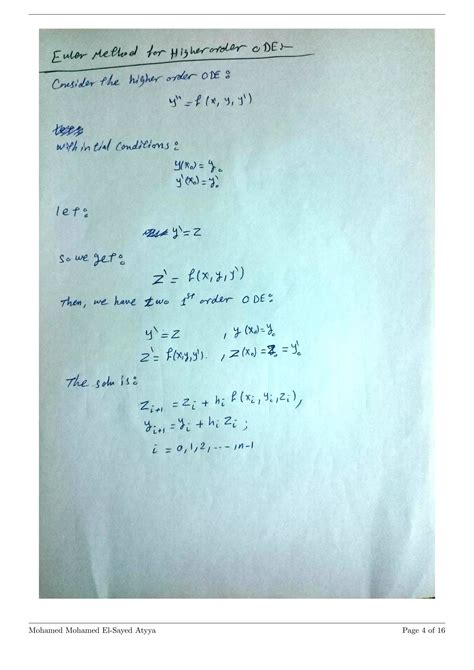 Euler Method for Higher order ODE:-
Consider the higher order ODE:
y'' = f(x, y, y')
with intial conditions:
y(x₀) = y₀
y'(x₀) = y'₀
let:
y' = Z
So we get:
Z' = f(x, y, y')
Then, we have two 1st order ODE:
y' = Z , y(x₀) = y₀
Z' = f(x, y, y'). , Z(x₀) = Z₀ = y'₀
The solu is:
Zᵢ₊₁ = Zᵢ + hᵢ f(xᵢ, yᵢ, zᵢ),
yᵢ₊₁ = yᵢ + hᵢ Zᵢ ;
i = 0,1,2, ----, n-1
Mohamed Mohamed El-Sayed Atyya Page 4 of 16